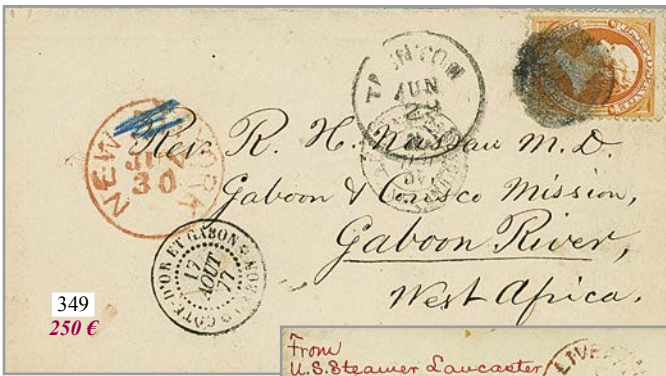 TAUNTON
JUN
NEW YORK
30
Rev. R. H. Nassau M.D.
Gaboon & Corisco Mission,
Gaboon River,
West Africa.
COTE D'OR ET GABON
17
AOUT
77
349
250 €
From
U.S. Steamer Lancaster